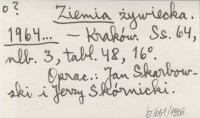 o? Ziemia żywiecka.
1964... – Kraków. Ss. 64,
nlb. 3, tabl. 48, 16°.
Oprac.: Jan Skarbow-
ski i Jerzy Skórnicki.